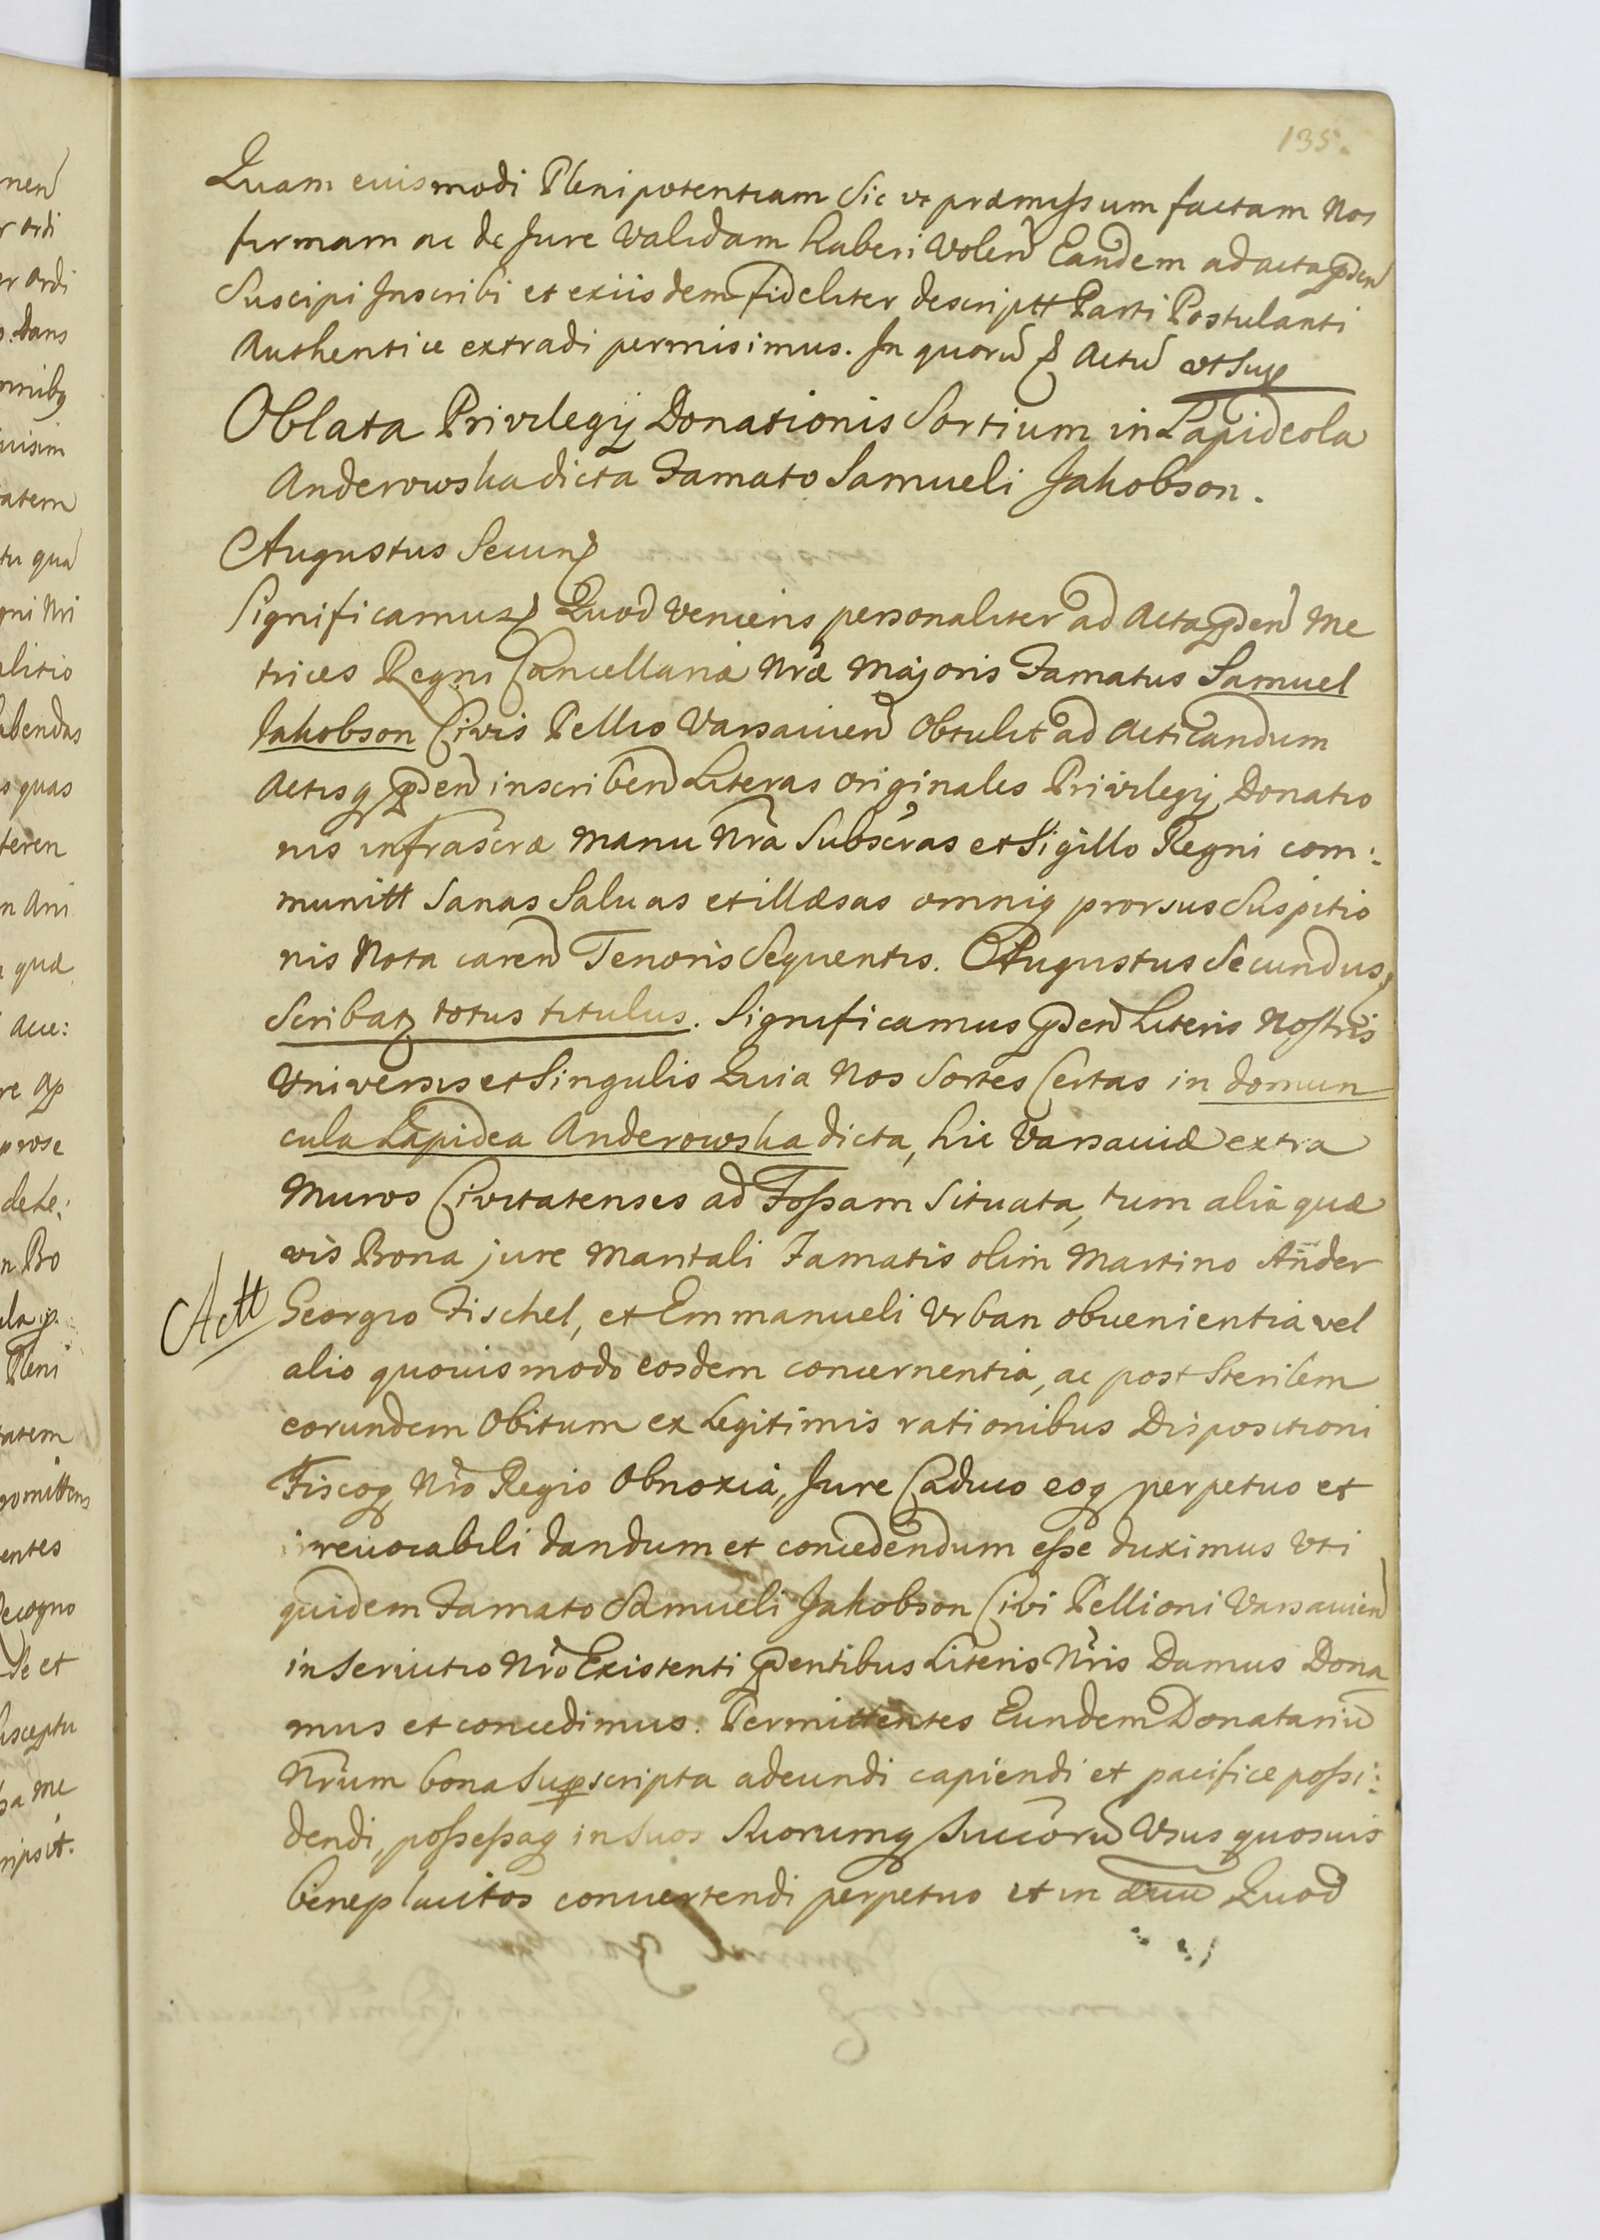 135.
Quam eiusmodi Plenipotentiam Sic vt præmissum factam Nos
firmam ac de Jure Validam haberi Volen Eandem ad acta pden
Suscipi Inscribi et exiisdem fideliter descriptt Parti Postulanti
Authentice extradi permisimus. In quorũ Actũ vt Sup
Oblata Privilegij Donationis Sortium in Lapideola
Anderowska dicta Famato Samueli Jakobson.
Augustus Secun
Significamus Quod Veniens personaliter ad Acta pden Me
trices Regni Cancellariæ Nræ Majoris Famatus Samuel
Jakobson Civis Pellio Varsavien Obtulit ad Acticandum
Actisq pden inscriben Literas Originales Privilegij Donatio
nis infrascræ Manu Nra Subscras et Sigillo Regni com:
munitt Sanas Saluas et illæsas omniq prorsus Suspitio
nis Nota caren Tenoris Sequentis. Augustus Secundus
Scribat totus titulus. Significamus pden Literis Nostris
Vniversis et Singulis Quia Nos Sortes Certas in domun
cula Lapidea Anderowska dicta, hic Varsaviæ extra
Muros Civitatenses ad Fossam Situata, tum alia quæ
vis Bona jure Maritali Famatis olim Martino Ander
Actt
Georgio Fischel, et Emmanueli Vrban obuenientia vel
alio quouismodo eosdem concernentia, ac post Sterilem
eorundem Obitum ex Legitimis rationibus Dispositioni
Fiscoq Nro Regio Obnoxia, Jure Caduco eoq perpetuo et
irreuocabili dandum et concedendum esse duximus Vti
quidem Famato Samueli Jakobson Civi Pellioni Varsavien
in Seruitio Nro Existenti pdentibus Literis Nris Damus Dona
mus et concedimus. Permittentes Eundem Donatariũ
Nrum bona Supscripta adeundi capiendi et pacifice possi:
dendi, possessaq in Suos Suorumq Succorũ Vsus quosuis
beneplacitos conuertendi perpetuo et in æuũ Quod